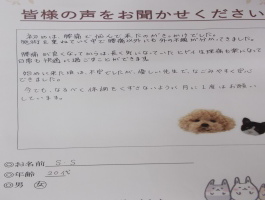 皆様の声をお聞かせください
初めは、腰痛に悩んで来たのがきっかけでした。
施術を重ねていく中で腰痛以外にも体の不調が分かってきました。
腰痛が良くなってからは、長く悩んでいた
日常も快適に過ごすことができます。
始めに来た頃は、不安でしたが、優しい先生で、なごみやすく安心
できました。
今でも、なるべく体調をくずさないように月に1度はお願い
しています。
◎お名前 S.S
◎年齢 20代
◎男 女